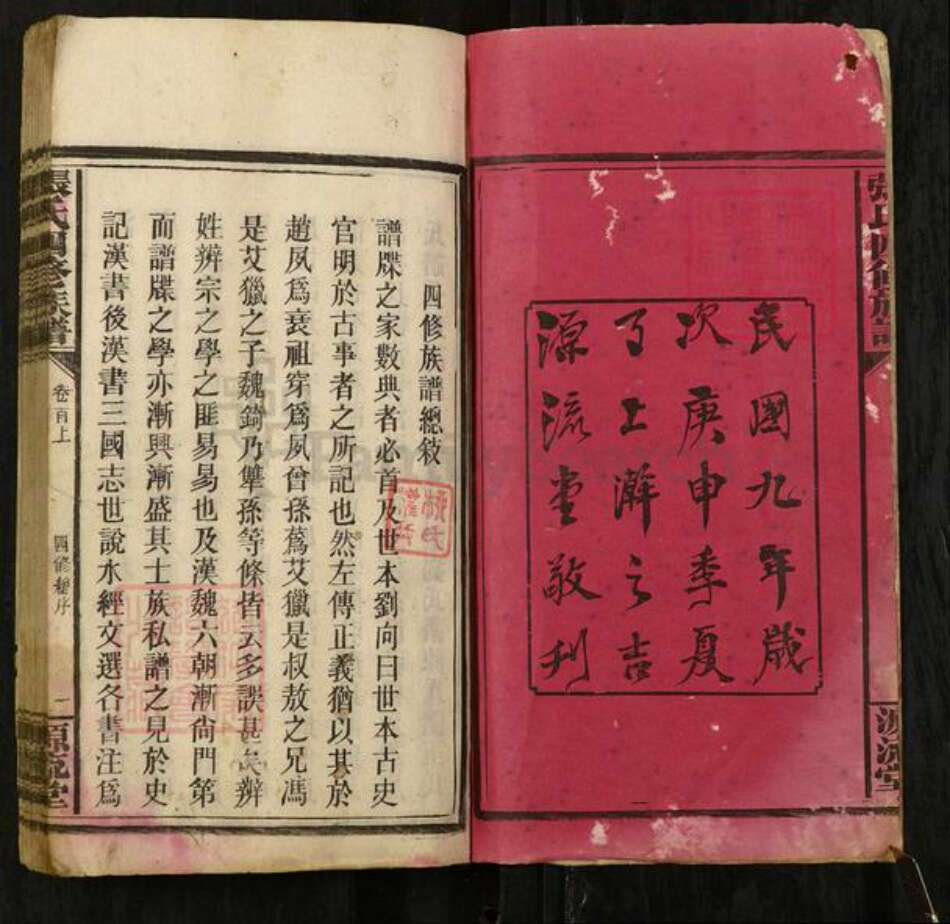 民國九年歲
次庚申季夏
了上澣之吉
源流堂敬刊
張氏四修族譜
源流堂
四修族譜總敍
譜牒之家數典者必首及世本劉向曰世本古史
官明於古事者之所記也然左傳正義猶以其於
趙夙爲衰祖穿爲夙曾孫蒍艾獵是叔敖之兄馮
是艾獵之子魏錡乃犨孫等條皆云多誤甚矣辨
姓辨宗之學之匪易易也及漢魏六朝漸尙門第
而譜牒之學亦漸興漸盛其士族私譜之見於史
記漢書後漢書三國志世說水經文選各書注爲
張氏四修族譜
卷首上
四修總序
一
源流堂